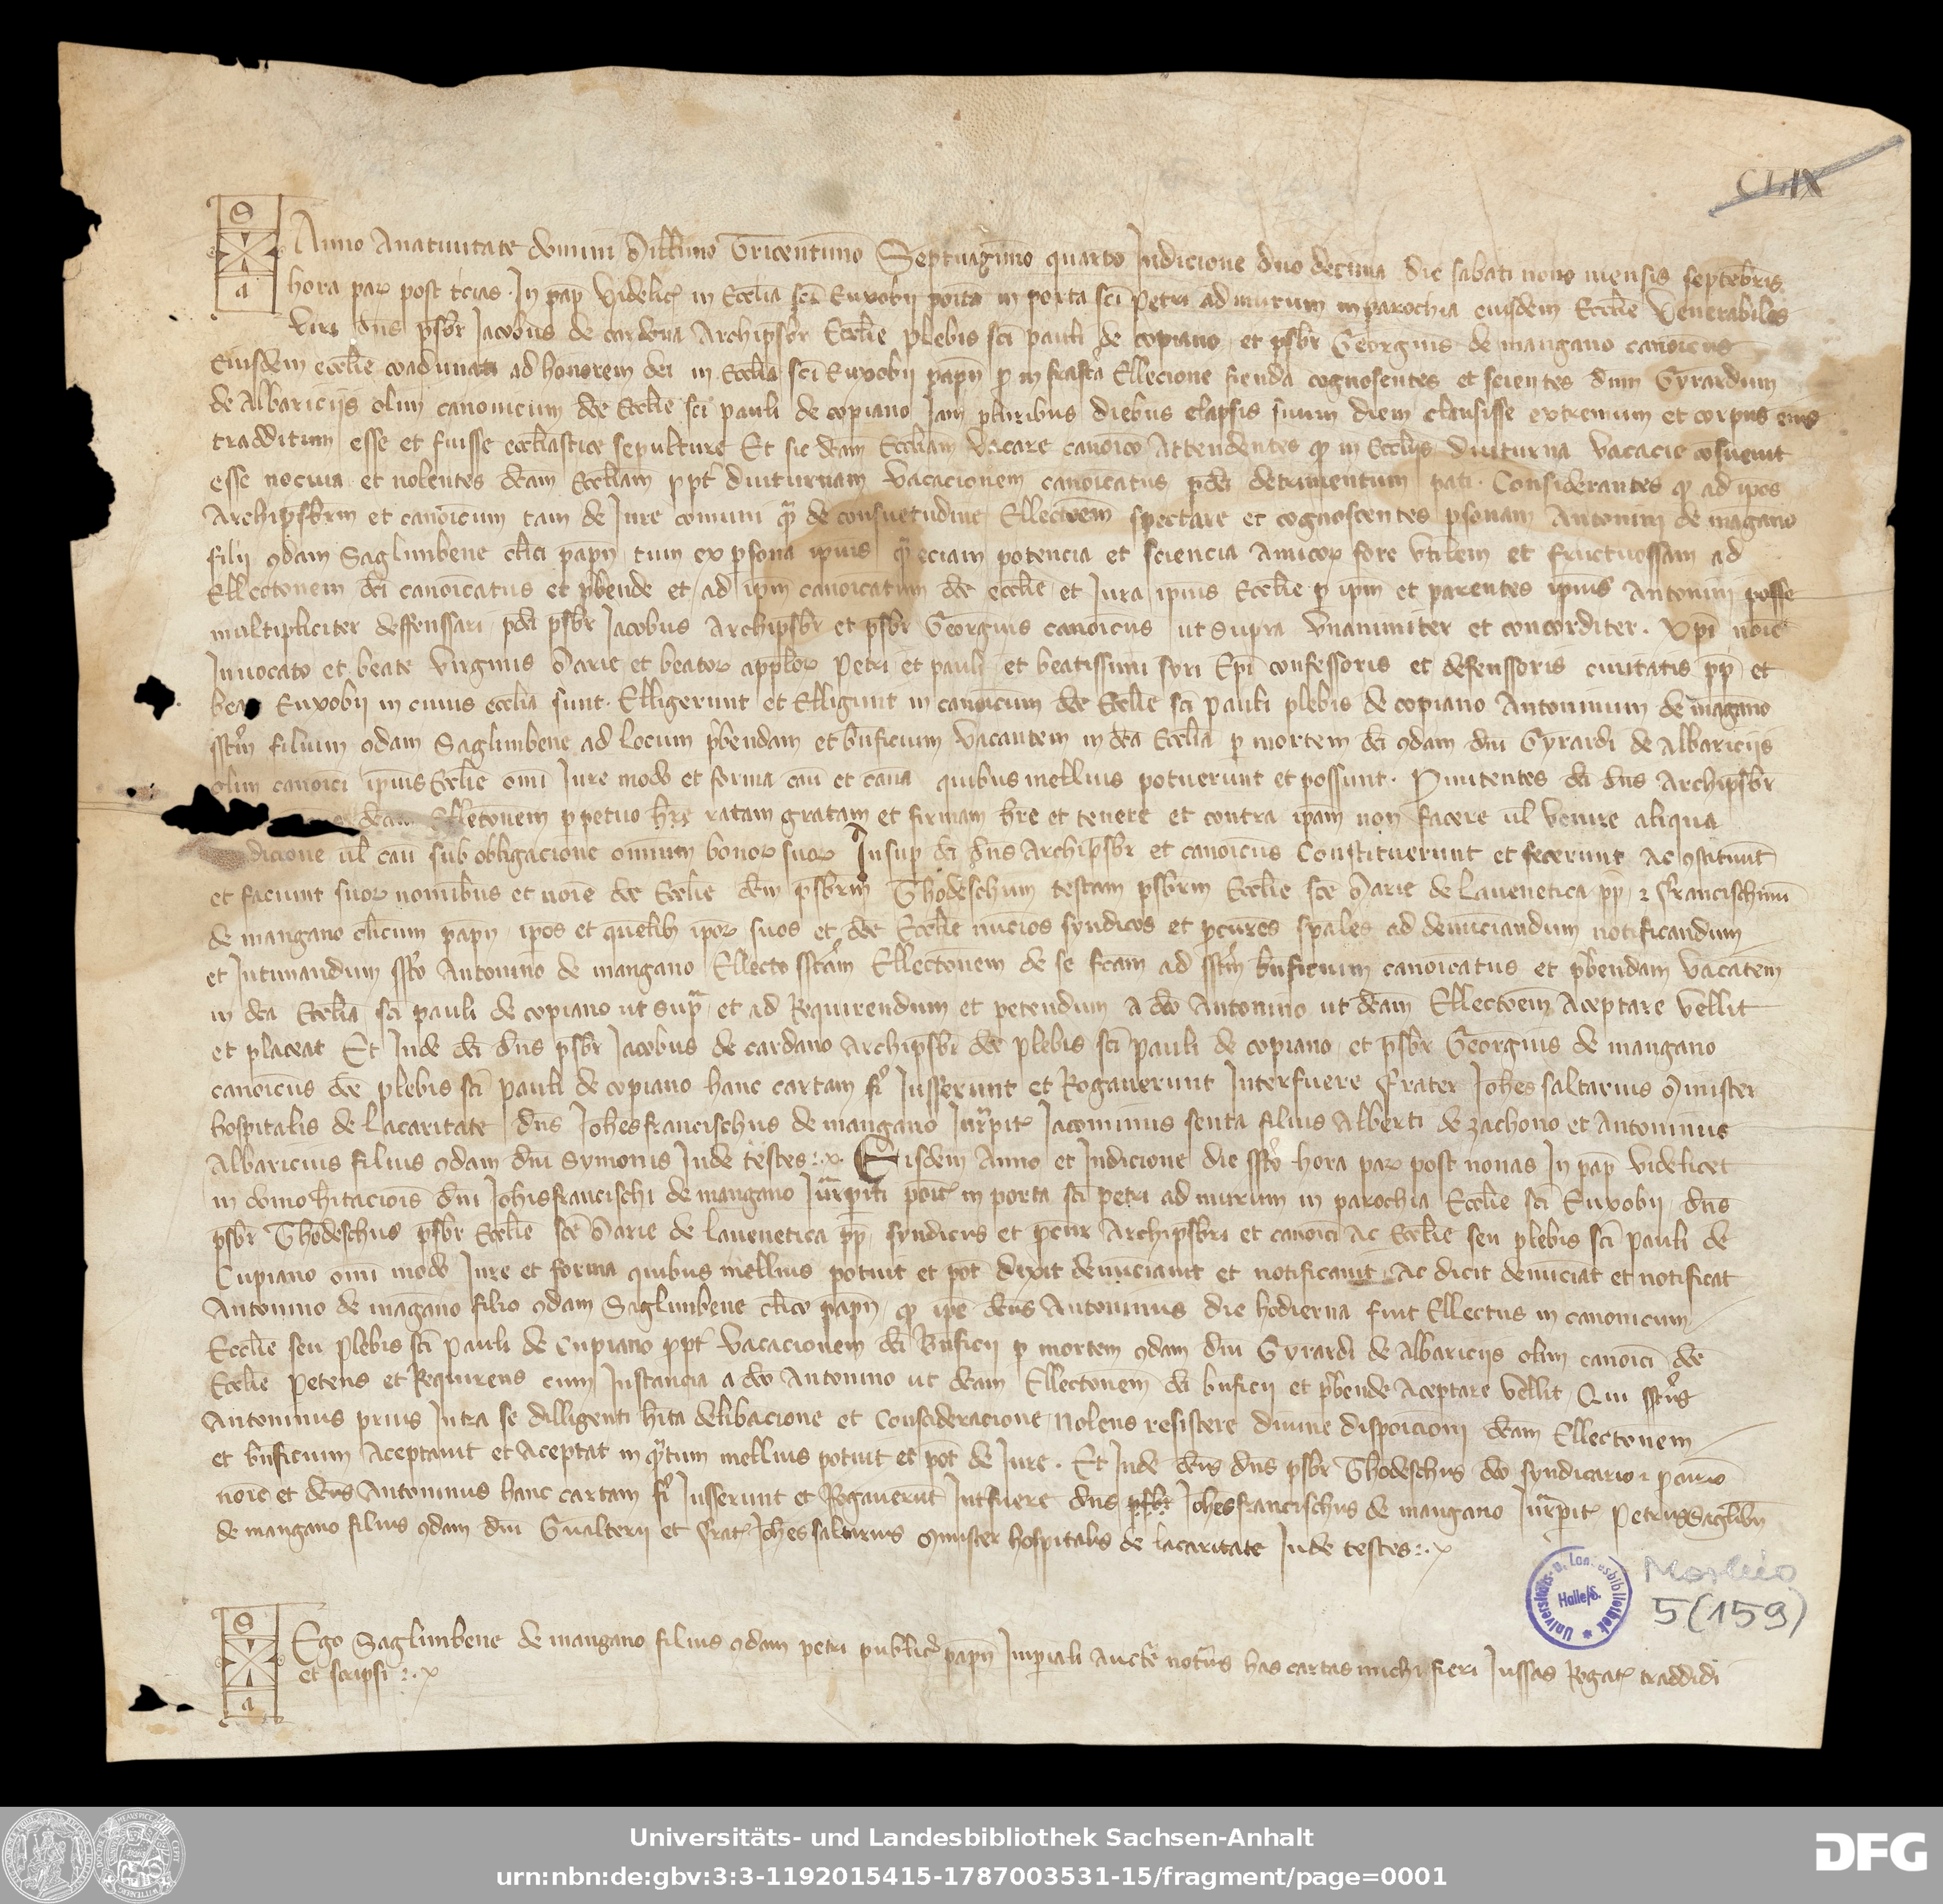 CLIX
S
a
Anno Anatiuitate domini Millimo Tricentimo Septuagimo quarto Indicione duo decima die sabati nono mensis septebris
hora par post tcias. In pap videlicꝫ in Ecclia sci Euxobij poita in porta sci Petri ad murum in parochia eiusdem Ecclie Venerabiles
viri dns psbr Jacobus de cardona Archipsbr Ecclie plebis sci pauli de copiano et psbr Georgius de mangano canoicus
Eiusdem ecclie coadunati ad honorem dei in Ecclia sci Euxobij papn p infrascta Ellecione fienda cognosentes et scientes dnm Gyrardum
de Albariciis olim canonicum dce Ecclie sci pauli de copiano Jam pluribus diebus elapsis suum diem clausisse extremum et corpus eius
tradditum esse et fuisse ecclastice sepulture Et sic dcam Eccliam vacare canoico Attendentes qp in Eccliis diuturna vacacio cosueuit
esse nociua et nolentes dcam Eccliam ppt diuturnam vacacionem canoicatus pdci detrimentum pati. Considerantes qp ad ipos
Archipsbrm et canoicum tam de Jure comuni qm de consuetudine Ellectoem spectare et cognoscentes psonam Antonini de magano
filij qdam Saglimbene clici papn tum ex psona ipius qm eciam potencia et sciencia Amicor fore vtilem et fructuossam ad
Ellectonem dci canoicatus et pbende et ad ipm canoicatum dce ecclie et Jura ipius Ecclie p ipm et parentes ipius Antonini posse
multipliciter deffenssari pdci psbr Jacobus Archipsbr et psbr Georgius canoicus ut supra vnanimiter et concorditer. Xpi noie
Inuocato et beate virginis Marie et beator applor Petri et pauli et beatissimi syri Epi confessoris et defenssoris ciuitatis pp et
beati Euxobij in cuius ecclia sunt. Elligerunt et Elligunt in canoicum dce Ecclie sci Pauli plebis de copiano Antoninum de magano
sstm filium qdam Saglimbene ad locum pbendam et bnficium vacantem in dca Ecclia p mortem dci qdam dni Gyrardi de Albariciis
olim canoici ipius Ecclie omi Jure modo et forma cau et cana quibus mellius potuerunt et possunt. Pmitentes dci dns Archipsbr
dcam Ellectonem ppetuo hre ratam gratam et firmam hre et tenere et contra ipam non facere ul venire aliqua
dicione ul cau sub obligacione omium bonor suor Insup dci dns Archipsbr et canoicus Constituerunt et fecerunt Ac gstituut
et faciunt suor nomibus et noie dce Ecclie dnm psbrm Thodeschum testam psbrm Ecclie sce Marie de lauenetica pp ⁊ Francischinu
de mangano clicum papn ipos et quelib ipor suos et dce Ecclie nucios syndicos et pcures spales ad denuciandum notificandum
et Intimandum ssto Antonino de mangano Ellecto sstam Ellectonem de se fcam ad sstm bnficium canoicatus et pbendam vacatem
in dca Ecclia sci pauli de copiano ut supra et ad Requirendum et petendum a dco Antonino ut dcam Ellectoem Aceptare vellit
et placeat Et Inde dci dns psbr Jacobus de cardano Archipsbr dce plebis sci pauli de copiano et psbr Georgius de mangano
canoicus dce plebis sci pauli de copiano hanc cartam fi Iusserunt et Rogauerunt Interfuere Frater Johes saltarius Minister
hospitalis de lacaritate dns Johesfrancischus de mangano Iurpitꝫ Jacominus senta filius Alberti de zachono et Antoninus
Albaricius filius qdam dni Symonis Inde testes:.x. Eisdem Anno et Indicione die ssto hora par post nonas In pap videlicet
in domo hitacois dni Johisfrancischi de mangano Iurpiti poitꝫ in porta sci petri ad murum in parochia Ecclie sci Euxobij dns
psbr Thodeschus psbr Ecclie sce Marie de lauenetica pp syndicus et pcur Archipsbri et canoici Ac Ecclie seu plebis sci pauli de
Cupiano omi modo Iure et forma quibus mellius potuit et pot dixit denuciauit et notificauit Ac dicit denuciat et notificat
Antonino de magano filio qdam Saglimbene clico papn qp ipe dcus Antoninus die hodierna fuit Ellectus in canonicum
Ecclie seu plebis sci Pauli de Cupiano ppt vacacionem dci Bnficij p mortem qdam dni Gyrardi de Albariciis olim canoici dce
Ecclie Petens et Requirens cum Instancia a dco Antonino ut dcam Ellectonem dci bnficij et pbende Aceptare vellit Qui sstus
Antoninus prius Intra se dilligenti hita delibacione et Consideracione Nolens resistere diuine dispoicioni dcam Ellectonem
et bnficium Aceptauit et Aceptat in qtum mellius potuit et pot de Iure. Et Inde dcus dns psbr Thodeschus dco syndicario ⁊ pcurio
noie et dcus Antoninus hanc cartam fi Iusserunt et Rogauerut Intfuere dns psbr Johesfrancischus de mangano Iurpitꝫ Petrus Saglibn
de mangano filius qdam dni Gualterij et Fratꝫ Johes saltarius Minister hospitalis de lacaritate Inde testes:.x
S
a
Ego Saglimbene de mangano filius qdam petri publicꝰ papn Imperiali Aucte notus has cartas michi fieri Iussas Rogatꝫ traddidi
et scripsi:.x
Universitäts- u. Landesbibliothek
Halle/S.
Morbio
5 (159)
Universitäts- und Landesbibliothek Sachsen-Anhalt
urn:nbn:de:gbv:3:3-1192015415-1787003531-15/fragment/page=0001
DFG